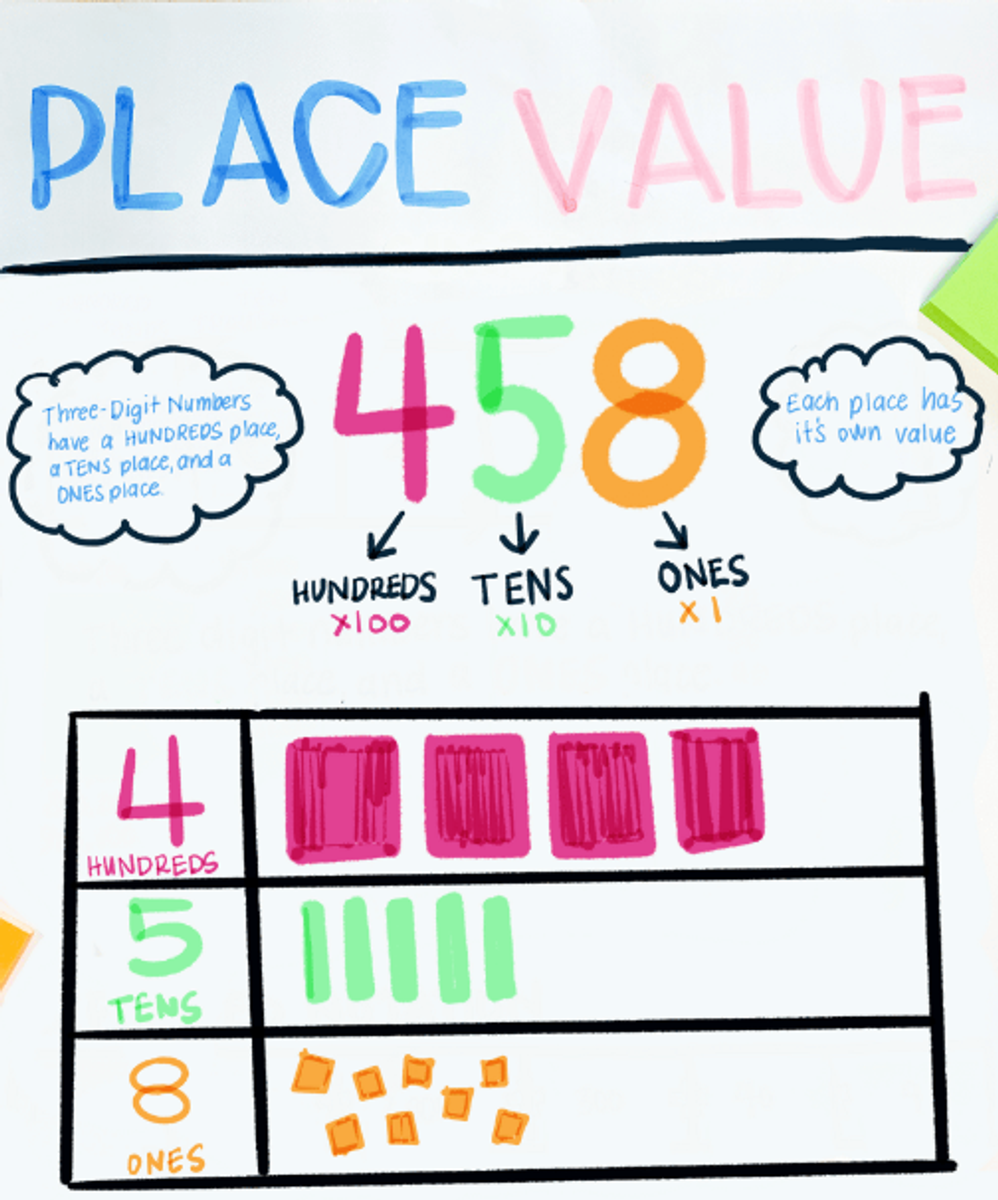 PLACE VALUE
458
Three-Digit Numbers
have a HUNDREDS place,
a TENS place, and a
ONES place.
Each place has
it's own value
HUNDREDS TENS ONES
x100 x10 x1
4
HUNDREDS
5
TENS
8
ONES